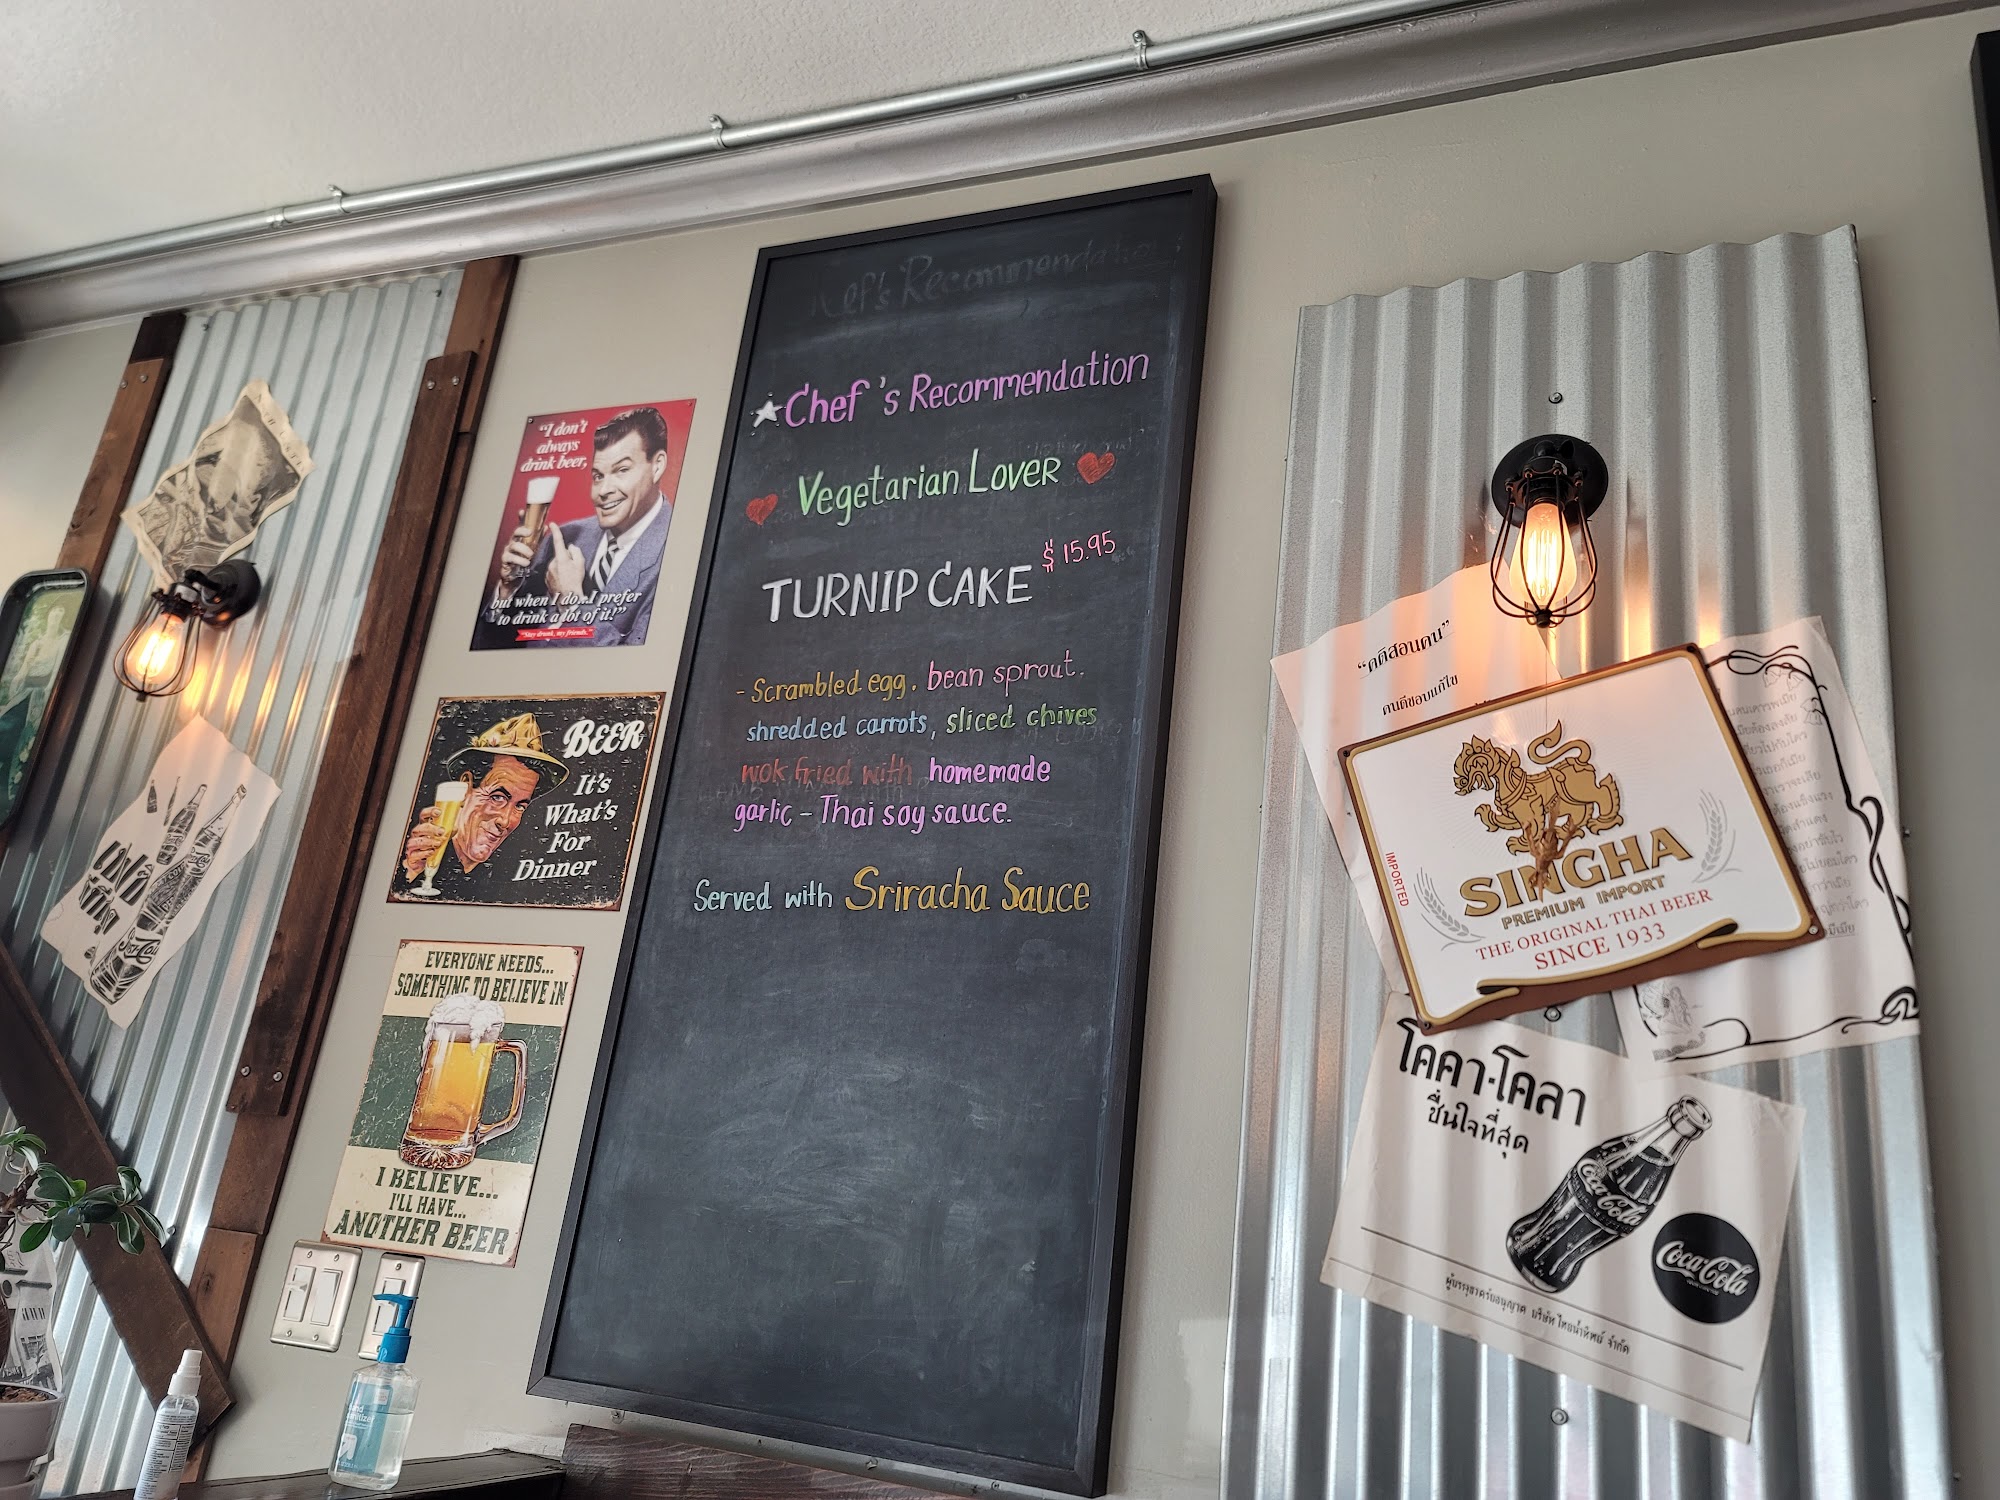 Chef's Recommendation
Vegetarian Lover
TURNIP CAKE $ 15.95
- Scrambled egg. bean sprout.
shredded carrots, sliced chives
wok fried with homemade
garlic - Thai soy sauce.
Served with Sriracha Sauce
"I don't
always
drink beer,
but when I do...I prefer
to drink a lot of it!"
"Stay drunk, my friends."
BEER
It's
What's
For
Dinner
EVERYONE NEEDS...
SOMETHING TO BELIEVE IN
I BELIEVE...
I'LL HAVE...
ANOTHER BEER
"คติสอนคน"
คนดีชอบแก้ไข
IMPORTED
SINGHA
PREMIUM IMPORT
THE ORIGINAL THAI BEER
SINCE 1933
โคคา-โคลา
ชื่นใจที่สุด
Coca-Cola
Coca-Cola